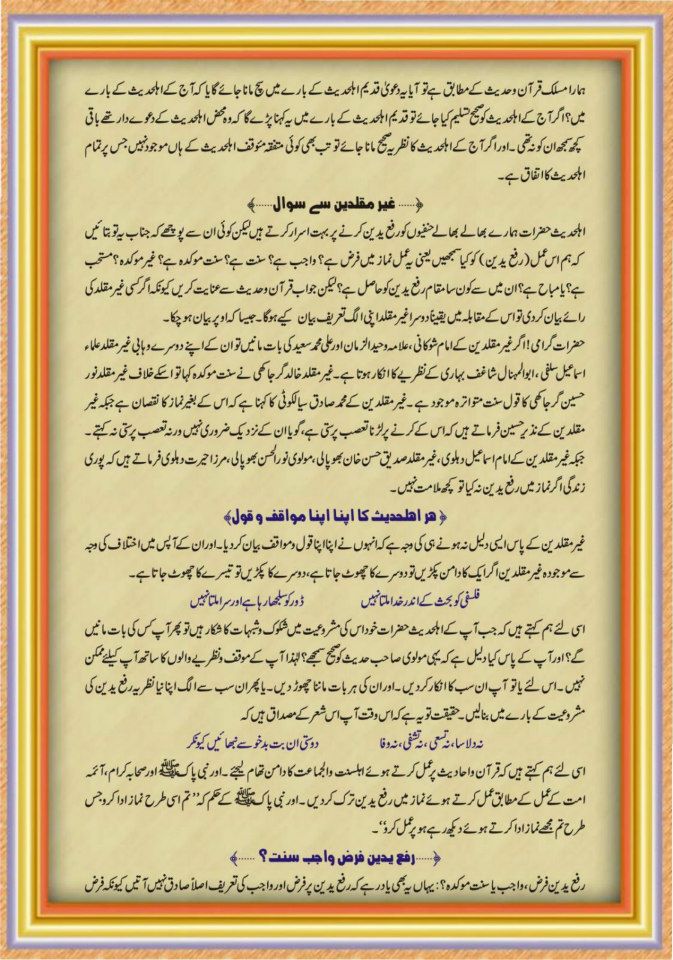 ہمارا مسلک قرآن وحدیث کے مطابق ہے تو آیا یہ دعویٰ قدیم اہلحدیث کے بارے میں سچ مانا جائے گا یا کہ آج کے اہلحدیث کے بارے
میں؟ اگر آج کے اہلحدیث کو صحیح تسلیم کیا جائے تو قدیم اہلحدیث کے بارے میں یہ کہنا پڑے گا کہ وہ محض اہلحدیث کے دعوے دار تھے باقی
کچھ سمجھ ان کو نہ تھی ۔ اور اگر آج کے اہلحدیث کا نظریہ صحیح مانا جائے تو تب بھی کوئی متفقہ مئوقف اہلحدیث کے ہاں موجود نہیں جس پر تمام
اہلحدیث کا اتفاق ہے۔
﴿...... غیر مقلدین سے سوال ......﴾
اہلحدیث حضرات ہمارے بھالے بھالے حنفیوں کو رفع یدین کرنے پر بہت اسرار کرتے ہیں لیکن کوئی ان سے پوچھے کہ جناب یہ تو بتائیں
کہ ہم اس عمل (رفع یدین) کو کیا سمجھیں یعنی یہ عمل نماز میں فرض ہے؟ واجب ہے؟ سنت ہے؟ سنت موکدہ ہے؟ غیر موکدہ؟ مستحب
ہے؟ یا مباح ہے؟ ان میں سے کون سا مقام رفع یدین کو حاصل ہے؟ لیکن جواب قرآن وحدیث سے عنایت کریں کیونکہ اگر کسی غیر مقلد کی
رائے بیان کردی تو اس کے مقابلہ میں یقیناً دوسرا غیر مقلد اپنی الگ تعریف بیان کیے ہوگا۔ جیسا کہ اوپر بیان ہوچکا۔
حضرات گرامی! اگر غیر مقلدین کے امام شوکانی، علامہ وحید الزمان اور علی محمد سعید کی بات مانیں تو ان کے اپنے دوسرے وہابی غیر مقلد علماء
اسماعیل سلفی، ابوالمہنال شاغف بہاری کے نظریے کا انکار ہوتا ہے۔ غیر مقلد خالد گرجاکھی نے سنت موکدہ کہا تو اسکے خلاف غیر مقلد نور
حسین گرجاکھی کا قول سنت متواترہ موجود ہے۔ غیر مقلدین کے محمد صادق سیالکوٹی کا کہنا ہے کہ اس کے بغیر نماز کا نقصان ہے جبکہ غیر
مقلدین کے نذیر حسین فرماتے ہیں کہ اس کے کرنے پر لڑنا تعصب پرستی ہے، گویا ان کے نزدیک ضروری نہیں ورنہ تعصب پرستی نہ کہتے۔
جبکہ غیر مقلدین کے امام اسماعیل دہلوی، غیر مقلد صدیق حسن خان بھوپالی، مولوی نور الحسن بھوپالی، مرزا حیرت دہلوی فرماتے ہیں کہ پوری
زندگی اگر نماز میں رفع یدین نہ کیا تو کچھ ملامت نہیں۔
﴿ ہر اہلحدیث کا اپنا اپنا مواقف و قول﴾
غیر مقلدین کے پاس ایسی دلیل نہ ہونے ہی کی وجہ ہے کہ انہوں نے اپنا اپنا قول ومواقف بیان کردیا۔ اور ان کے آپس میں اختلاف کی وجہ
سے موجودہ غیر مقلدین اگر ایک کا دامن پکڑیں تو دوسرے کا چھوٹ جاتا ہے، دوسرے کا پکڑیں تو تیسرے کا چھوٹ جاتا ہے۔
فلسفی کو بحث کے اندر خدا ملتا نہیں ڈور کو سلجھا رہا ہے اور سرا ملتا نہیں
اسی لئے ہم کہتے ہیں کہ جب آپ کے اہلحدیث حضرات خود اس کی مشروعیت میں شکوک وشبہات کا شکار ہیں تو پھر آپ کس کی بات مانیں
گے؟ اور آپ کے پاس کیا دلیل ہے کہ یہی مولوی صاحب حدیث کو صحیح سمجھے؟ لہٰذا آپ کے موقف ونظریے والوں کا ساتھ آپ کیلئے ممکن
نہیں ۔ اس لئے یا تو آپ ان سب کا انکار کردیں ۔ اور ان کی ہر بات ماننا چھوڑ دیں۔ یا پھر ان سب سے الگ اپنا نیا نظریہ رفع یدین کی
مشروعیت کے بارے میں بنالیں۔ حقیقت تو یہ ہے کہ اس وقت آپ اس شعر کے مصداق ہیں کہ
نہ دلاسا، نہ تسعی، نہ تشفی، نہ وفا دوستی ان بت بدخو سے نبھائیں کیونکر
اسی لئے ہم کہتے ہیں کہ قرآن واحادیث پر عمل کرتے ہوئے اہلسنت والجماعت کا دامن تھام لیجئے۔ اور نبی پاک ﷺ اور صحابہ کرام، آئمہ
امت کے عمل کے مطابق عمل کرتے ہوئے نماز میں رفع یدین ترک کردیں ۔ اور نبی پاک ﷺ کے حکم کہ ’’تم اسی طرح نماز ادا کرو جس
طرح تم مجھے نماز ادا کرتے ہوئے دیکھ رہے ہو پر عمل کرو‘‘۔
﴿..... رفع یدین فرض واجب سنت؟ ......﴾
رفع یدین فرض، واجب یا سنت موکدہ؟: یہاں یہ بھی یاد رہے کہ رفع یدین پر فرض اور واجب کی تعریف اصلاً صادق نہیں آتیں کیونکہ فرض